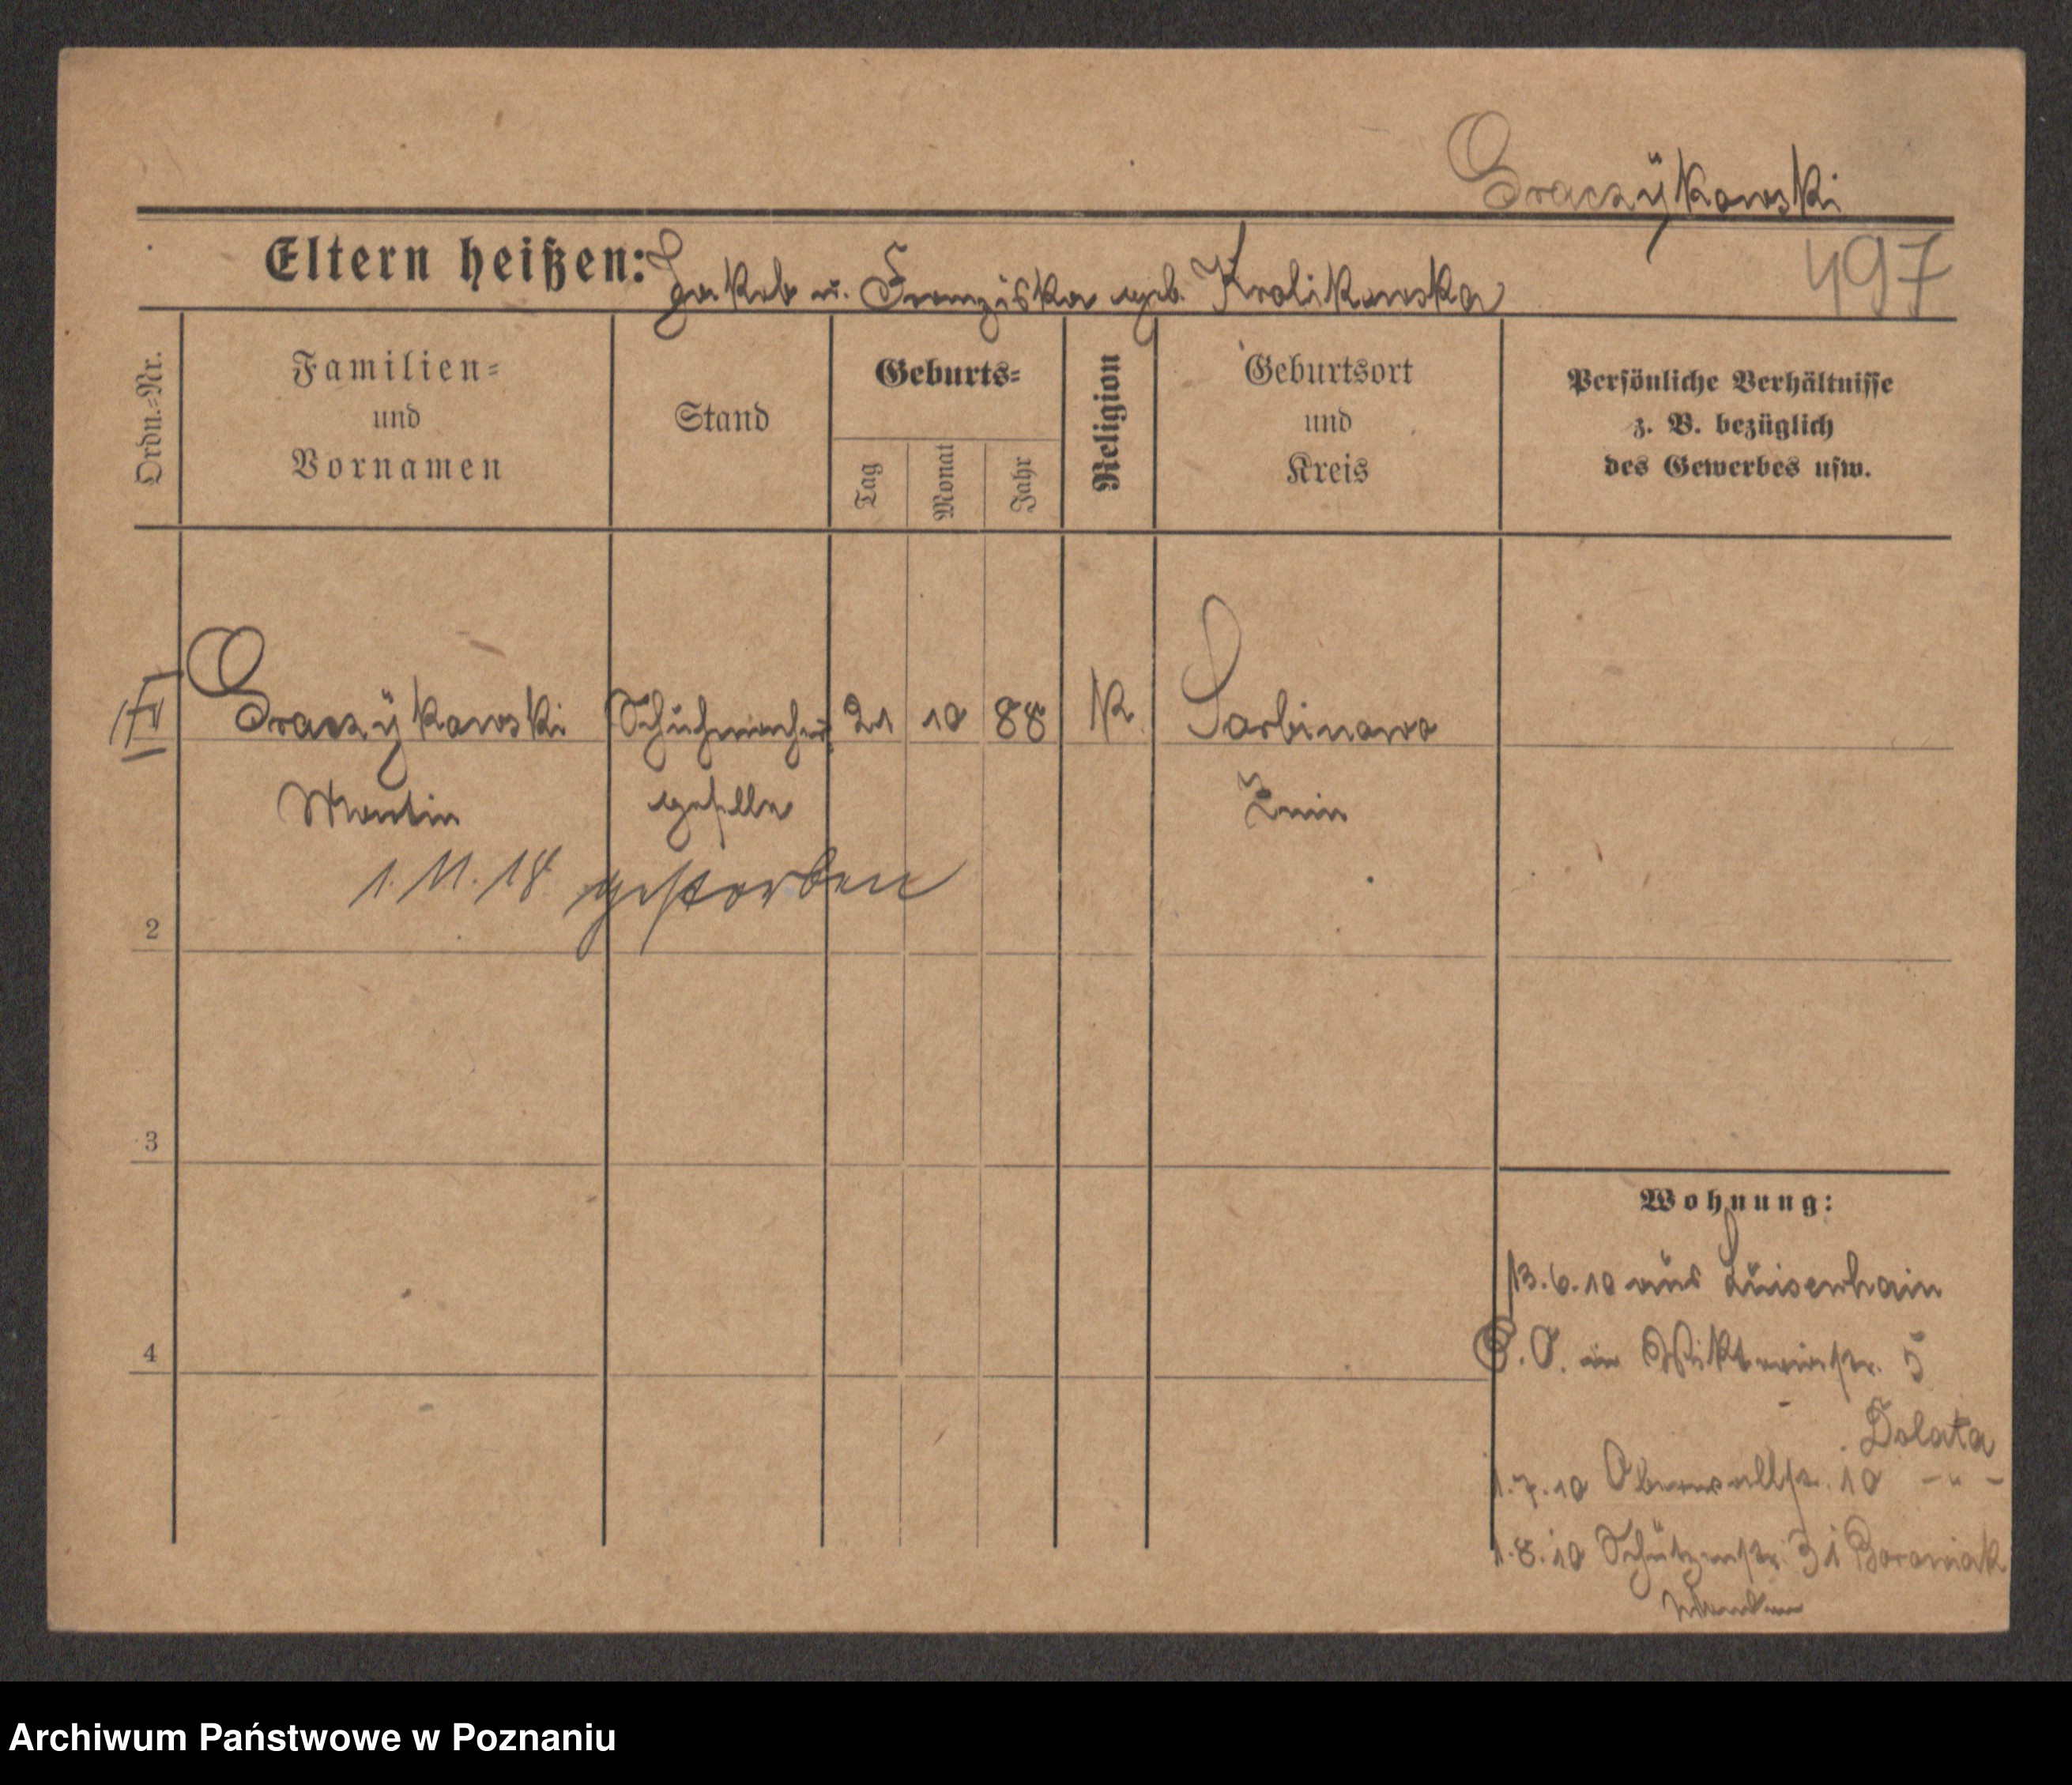 Graczÿkowski
Eltern heißen: Jakob u. Franziska geb. Krolikowska
497
Ordn.=Nr.
Familien=
und
Vornamen
Stand
Geburts=
Tag
Monat
Jahr
Religion
Geburtsort
und
Kreis
Persönliche Verhältnisse
z. B. bezüglich
des Gewerbes usw.
Graczÿkowski Schuhmacher 21 10 88 K. Sarbinowo
Martin geselle Znin
1. 11. 18 gestorben
2
3
4
Wohnung:
13.6.10 aus Luisenhain
P. O. in Viktoriastr. 5
Dolata
1.7.10 Oberwallstr. 10 - " -
1.8.10 Schützenstr. 31 Borowiak
Archiwum Państwowe w Poznaniu